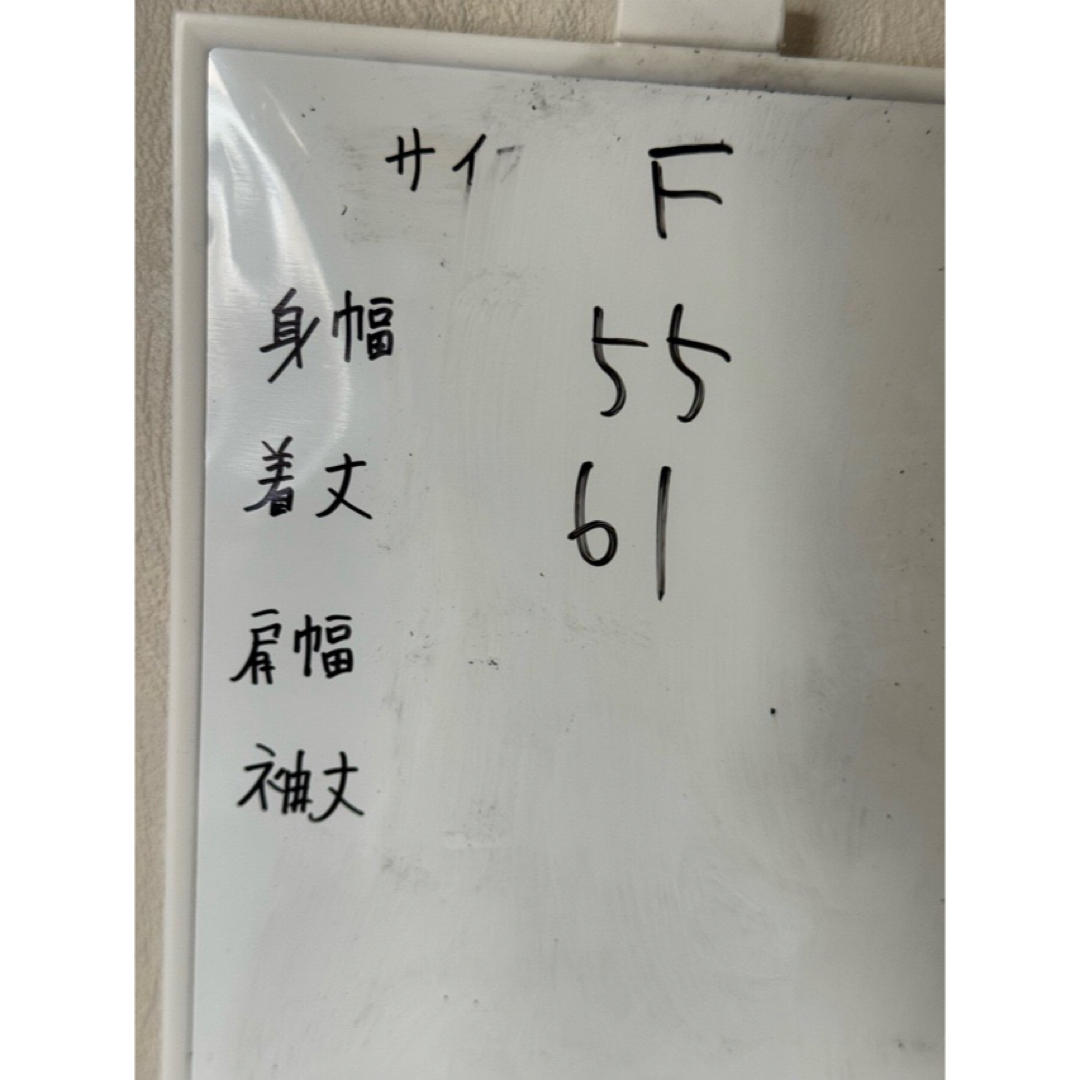 サイ F
身幅 55
着丈 61
肩幅
袖丈